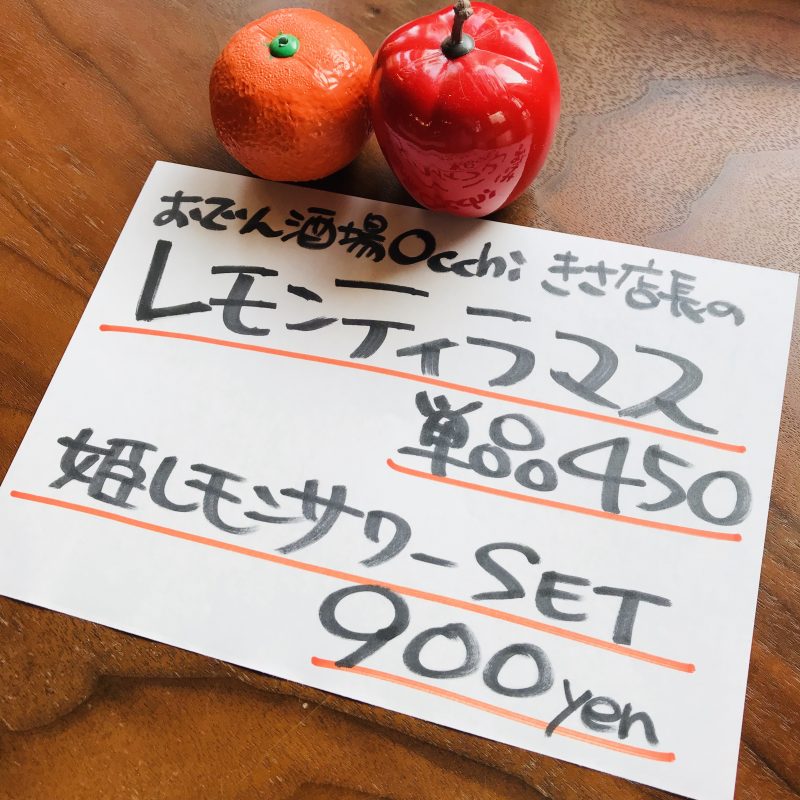 おでん酒場Occhi きさ店長の
レモンティラマス
単品450
姫レモンサワーSET
900yen